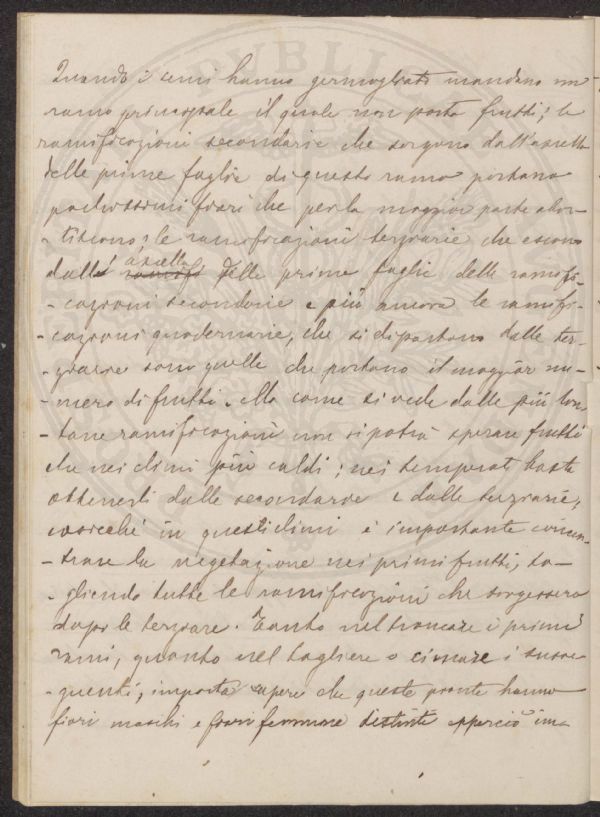 Quando i semi hanno germogliati mandano un
ramo principale il quale non porta frutti; le
ramificazioni secondarie che sorgono dall'ascella
delle prime foglie di questo ramo portano
pochissimi fiori che per la maggior parte abor-
-tiscono; le ramificazioni terziarie che escono
dall' ascella delle prime foglie delle ramifi-
-cazioni secondarie e più ancora le ramifi-
-cazioni quadernarie, che si dipartono dalle ter-
-ziarie sono quelle che portano il maggior nu-
-mero di frutti. Ma come si vede dalle più lon-
-tane ramificazioni non si potrà sperare frutti
che nei climi più caldi; nei temperati basta
ottenerli dalle secondarie e dalle terziarie,
cosicché in questi climi è importante concen-
-trare la vegetazione nei primi frutti, ta-
-gliendo tutte le ramificazioni che sorgessero
dopo le terziare. Tanto nel troncare i primi
rami, quanto nel tagliere o cimare i susse-
-guenti, importa sapere che queste piante hanno
fiori maschi e fiori femmine distinti apperciò